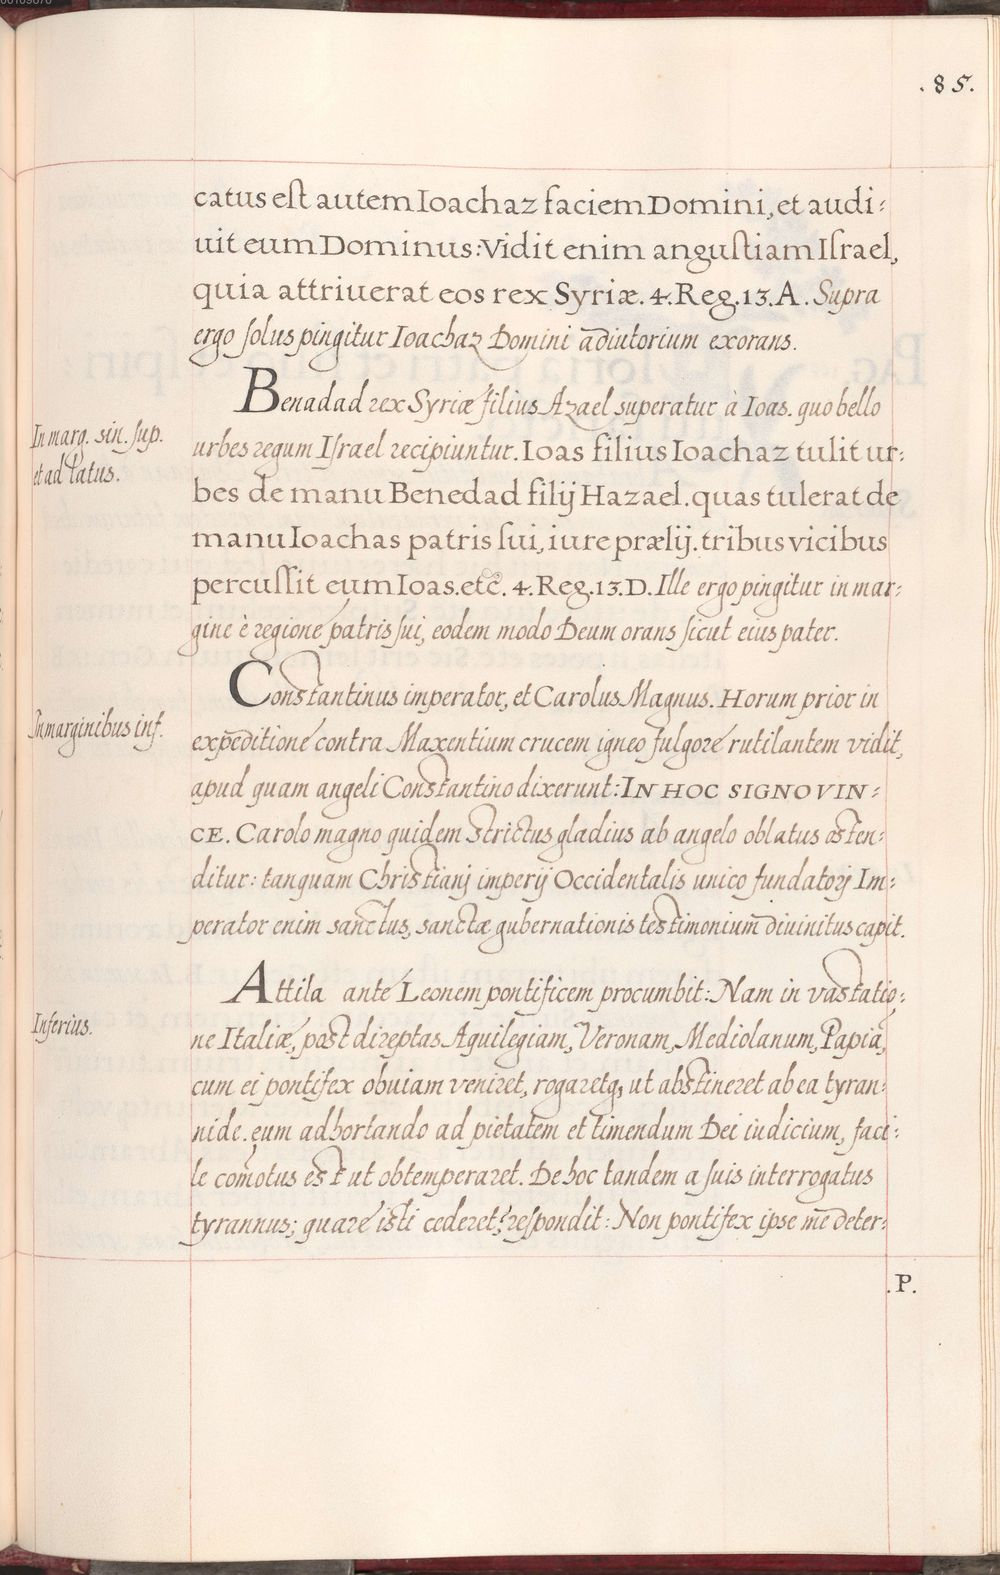 .85.
catus est autem Ioachaz faciem Domini, et audi:
uit eum Dominus: Vidit enim angustiam Israel,
quia attriuerat eos rex Syriæ. 4. Reg. 13. A. Supra
ergo solus pingitur Ioachaz Domini adiutorium exorans.
Benadad rex Syriæ filius Azael superatur à Ioas. quo bello
In marg. sin. sup.
et ad latus.
urbes regum Israel recipiuntur. Ioas filius Ioachaz tulit ur:
bes de manu Benedad filij Hazael. quas tulerat de
manu Ioachas patris sui, iure prælij. tribus vicibus
percussit eum Ioas. etc̃. 4. Reg. 13. D. Ille ergo pingitur in mar:
gine è regione patris sui, eodem modo Deum orans sicut eius pater.
Constantinus imperator, et Carolus Magnus. Horum prior in
In marginibus inf.
expeditione contra Maxentium crucem igneo fulgore rutilantem vidit,
apud quam angeli Constantino dixerunt: IN HOC SIGNO VIN:
CE. Carolo magno quidem strictus gladius ab angelo oblatus osten:
ditur: tanquam Christianj imperij Occidentalis unico fundatorj Im:
perator enim sanctus, sanctæ gubernationis testimonium diuinitus capit.
Attila ante Leonem pontificem procumbit: Nam in vastatio:
Inferius.
ne Italiæ, post direptas Aquilegiam, Veronam, Mediolanum, Papiã,
cum ei pontifex obuiam veniret, rogaretq, ut abstineret ab ea tyran:
nide. eum adhortando ad pietatem et timendum Dei iudicium, faci:
le com̃otus est ut obtemperaret. De hoc tandem a suis interrogatus
tyrannus; quare isti cederet? respondit: Non pontifex ipse me deter:
.P.